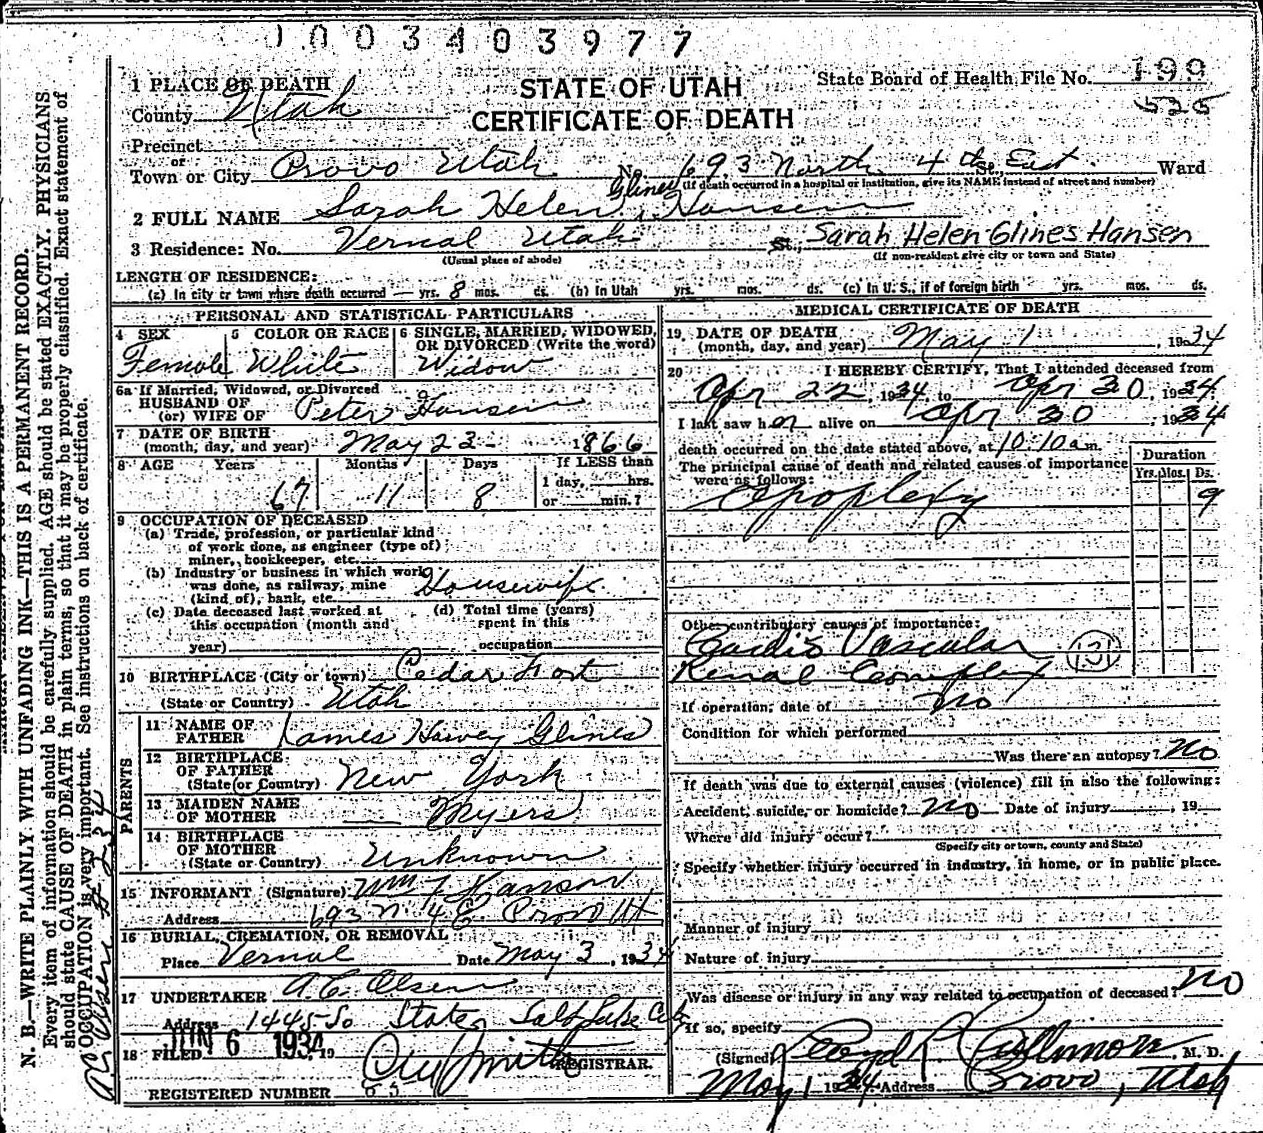 1003403977
STATE OF UTAH
CERTIFICATE OF DEATH
State Board of Health File No. 199
525
1 PLACE OF DEATH
County Utah
Precinct
or
Town or City Provo Utah No. 693 North 4th St., East. Ward
(If death occurred in a hospital or institution, give its NAME instead of street and number)
Glines
2 FULL NAME Sarah Helen Hansen
3 Residence: No. Vernal Utah St., Sarah Helen Glines Hansen
(Usual place of abode) (If non-resident give city or town and State)
LENGTH OF RESIDENCE:
(a) In city or town where death occurred — yrs. 8 mos. ds. (b) In Utah yrs. mos. ds. (c) In U. S., if of foreign birth yrs. mos. ds.
PERSONAL AND STATISTICAL PARTICULARS
4 SEX 5 COLOR OR RACE 6 SINGLE, MARRIED, WIDOWED, OR DIVORCED (Write the word)
Female White Widow
6a If Married, Widowed, or Divorced
HUSBAND OF
(or) WIFE OF Peter Hansen
7 DATE OF BIRTH
(month, day, and year) May 23 - 1866
8 AGE Years Months Days If LESS than
67 11 8 1 day, hrs.
or min.?
9 OCCUPATION OF DECEASED
(a) Trade, profession, or particular kind
of work done, as engineer (type of)
miner, bookkeeper, etc.
(b) Industry or business in which work
was done, as railway, mine
(kind of), bank, etc. Housewife
(c) Date deceased last worked at (d) Total time (years)
this occupation (month and spent in this
year) occupation
10 BIRTHPLACE (City or town) Cedar Fort
(State or Country) Utah
PARENTS
11 NAME OF
FATHER James Harvey Glines
12 BIRTHPLACE
OF FATHER
(State or Country) New York
13 MAIDEN NAME
OF MOTHER — Myers
14 BIRTHPLACE
OF MOTHER
(State or Country) Unknown
15 INFORMANT (Signature) Wm F Hanson
Address 693 N 4 E Provo Ut
16 BURIAL, CREMATION, OR REMOVAL
Place Vernal Date May 3, 1934
17 UNDERTAKER A. E. Olsen
Address 1445 So State Salt Lake City
18 FILED JUN 6 1934 19
REGISTRAR.
REGISTERED NUMBER 85
MEDICAL CERTIFICATE OF DEATH
19 DATE OF DEATH
(month, day, and year) May 1, 1934
20 I HEREBY CERTIFY, That I attended deceased from
Apr 22, 1934, to Apr 30, 1934.
I last saw her alive on Apr 30, 1934
death occurred on the date stated above, at 10:10 a m.
The principal cause of death and related causes of importance
were as follows:
Duration
Yrs. Mos. Ds.
Apoplexy 9
Other contributory causes of importance:
Cardio Vascular
Renal Complex
131
If operation, date of no
Condition for which performed
Was there an autopsy? No
If death was due to external causes (violence) fill in also the following:
Accident, suicide, or homicide? no Date of injury , 19
Where did injury occur?
(Specify city or town, county and State)
Specify whether injury occurred in industry, in home, or in public place.
Manner of injury
Nature of injury
Was disease or injury in any way related to occupation of deceased? no
If so, specify
(Signed) Lloyd L. Cullimore, M. D.
May 1 1934 Address Provo, Utah
N. B.—WRITE PLAINLY WITH UNFADING INK—THIS IS A PERMANENT RECORD.
Every item of information should be carefully supplied. AGE should be stated EXACTLY. PHYSICIANS
should state CAUSE OF DEATH in plain terms, so that it may be properly classified. Exact statement of
OCCUPATION is very important. See instructions on back of certificate.